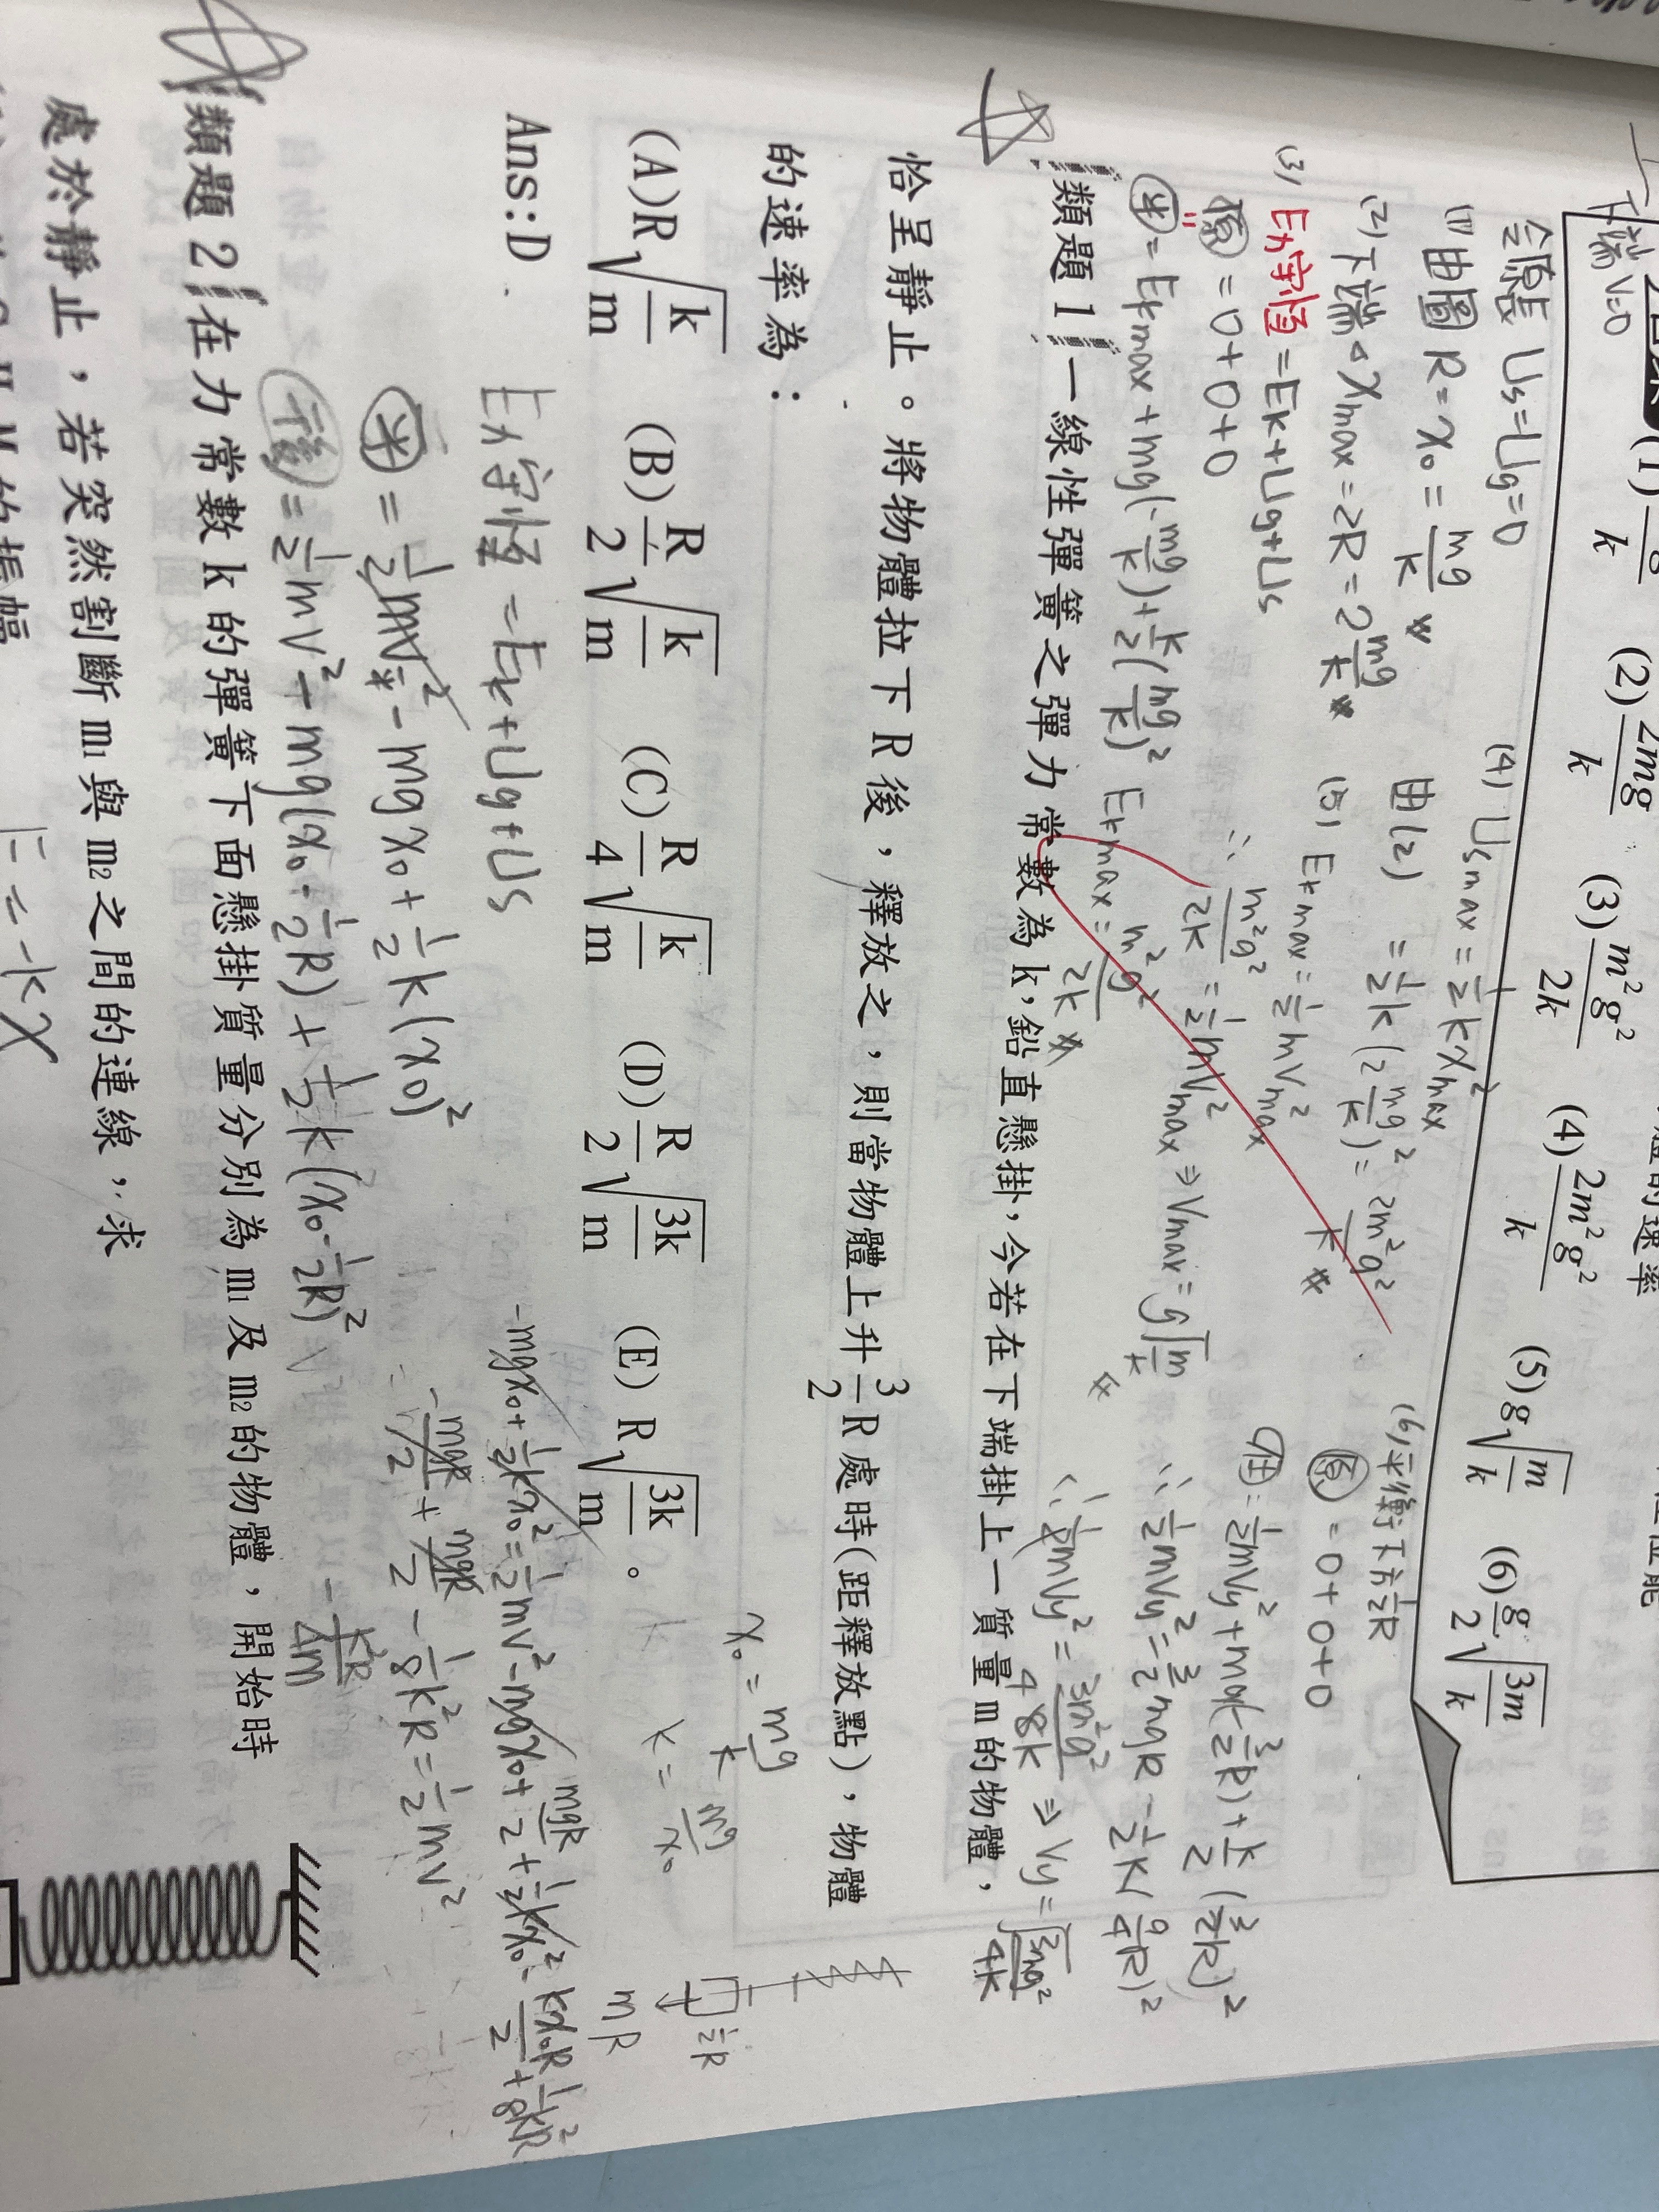 (1) (2)2mg/k (3)m²g²/2k (4)2m²g²/k (5)g√(m/k) (6)g/2√(3m/k)
下端 V=0
令原長 Us=Ug=0
(1) 由圖 R=x₀=mg/k
(2) 下端 xmax=2R=2mg/k
(3) E力守恆=Ek+Ug+Us
原=0+0+0
=Ekmax+mg(-mg/k)+k/2(mg/k)²
Ekmax=m²g²/2k
(4) Usmax=1/2kxmax²
由(2) =1/2k(2mg/k)²=2m²g²/k
(5) Ekmax=1/2mVmax²
∴ m²g²/2k=1/2mVmax² ⇒ Vmax=g√(m/k)
(6) 平衡下方1/2R
原=0+0+0
=1/2mVy²+mg(-3/2R)+k/2(3/2R)²
∴ 1/2mVy²=3/2mgR-1/2k(9/4R)²
⇒ Vy=
類題 1 一線性彈簧之彈力常數為 k,鉛直懸掛,今若在下端掛上一質量 m 的物體,
恰呈靜止。將物體拉下 R 後,釋放之,則當物體上升 3/2 R 處時(距釋放點),物體
的速率為:
(A)R√(k/m) (B)R/2√(k/m) (C)R/4√(k/m) (D)R/2√(3k/m) (E) R√(3k/m)。
Ans:D.
x₀=mg/k
k=mg/x₀
1/2R
m R
E力守恆=Ek+Ug+Us
平=1/2mV平²-mgx₀+1/2k(x₀)²
=1/2mV²-mg(x₀-1/2R)+1/2k(x₀-1/2R)²
-mgx₀+1/2kx₀²=1/2mV²-mgx₀+mgR/2+1/2kx₀²-kx₀R/2+1/8kR²
-mgR/2+mgR/2-1/8k²R=1/2mV²
類題 2 在力常數 k 的彈簧下面懸掛質量分別為 m₁ 及 m₂ 的物體,開始時
處於靜止,若突然割斷 m₁ 與 m₂ 之間的連線,求
F=-kx